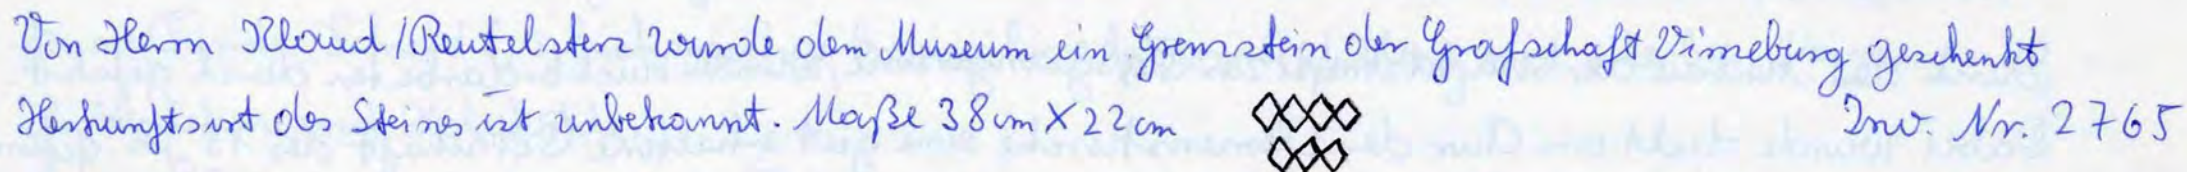 Von Herrn Kloud/Reutelsterz wurde dem Museum ein Grenzstein der Grafschaft Virneburg geschenkt
Herkunftsort des Steines ist unbekannt. Maße 38cm X 22cm Inv. Nr. 2765